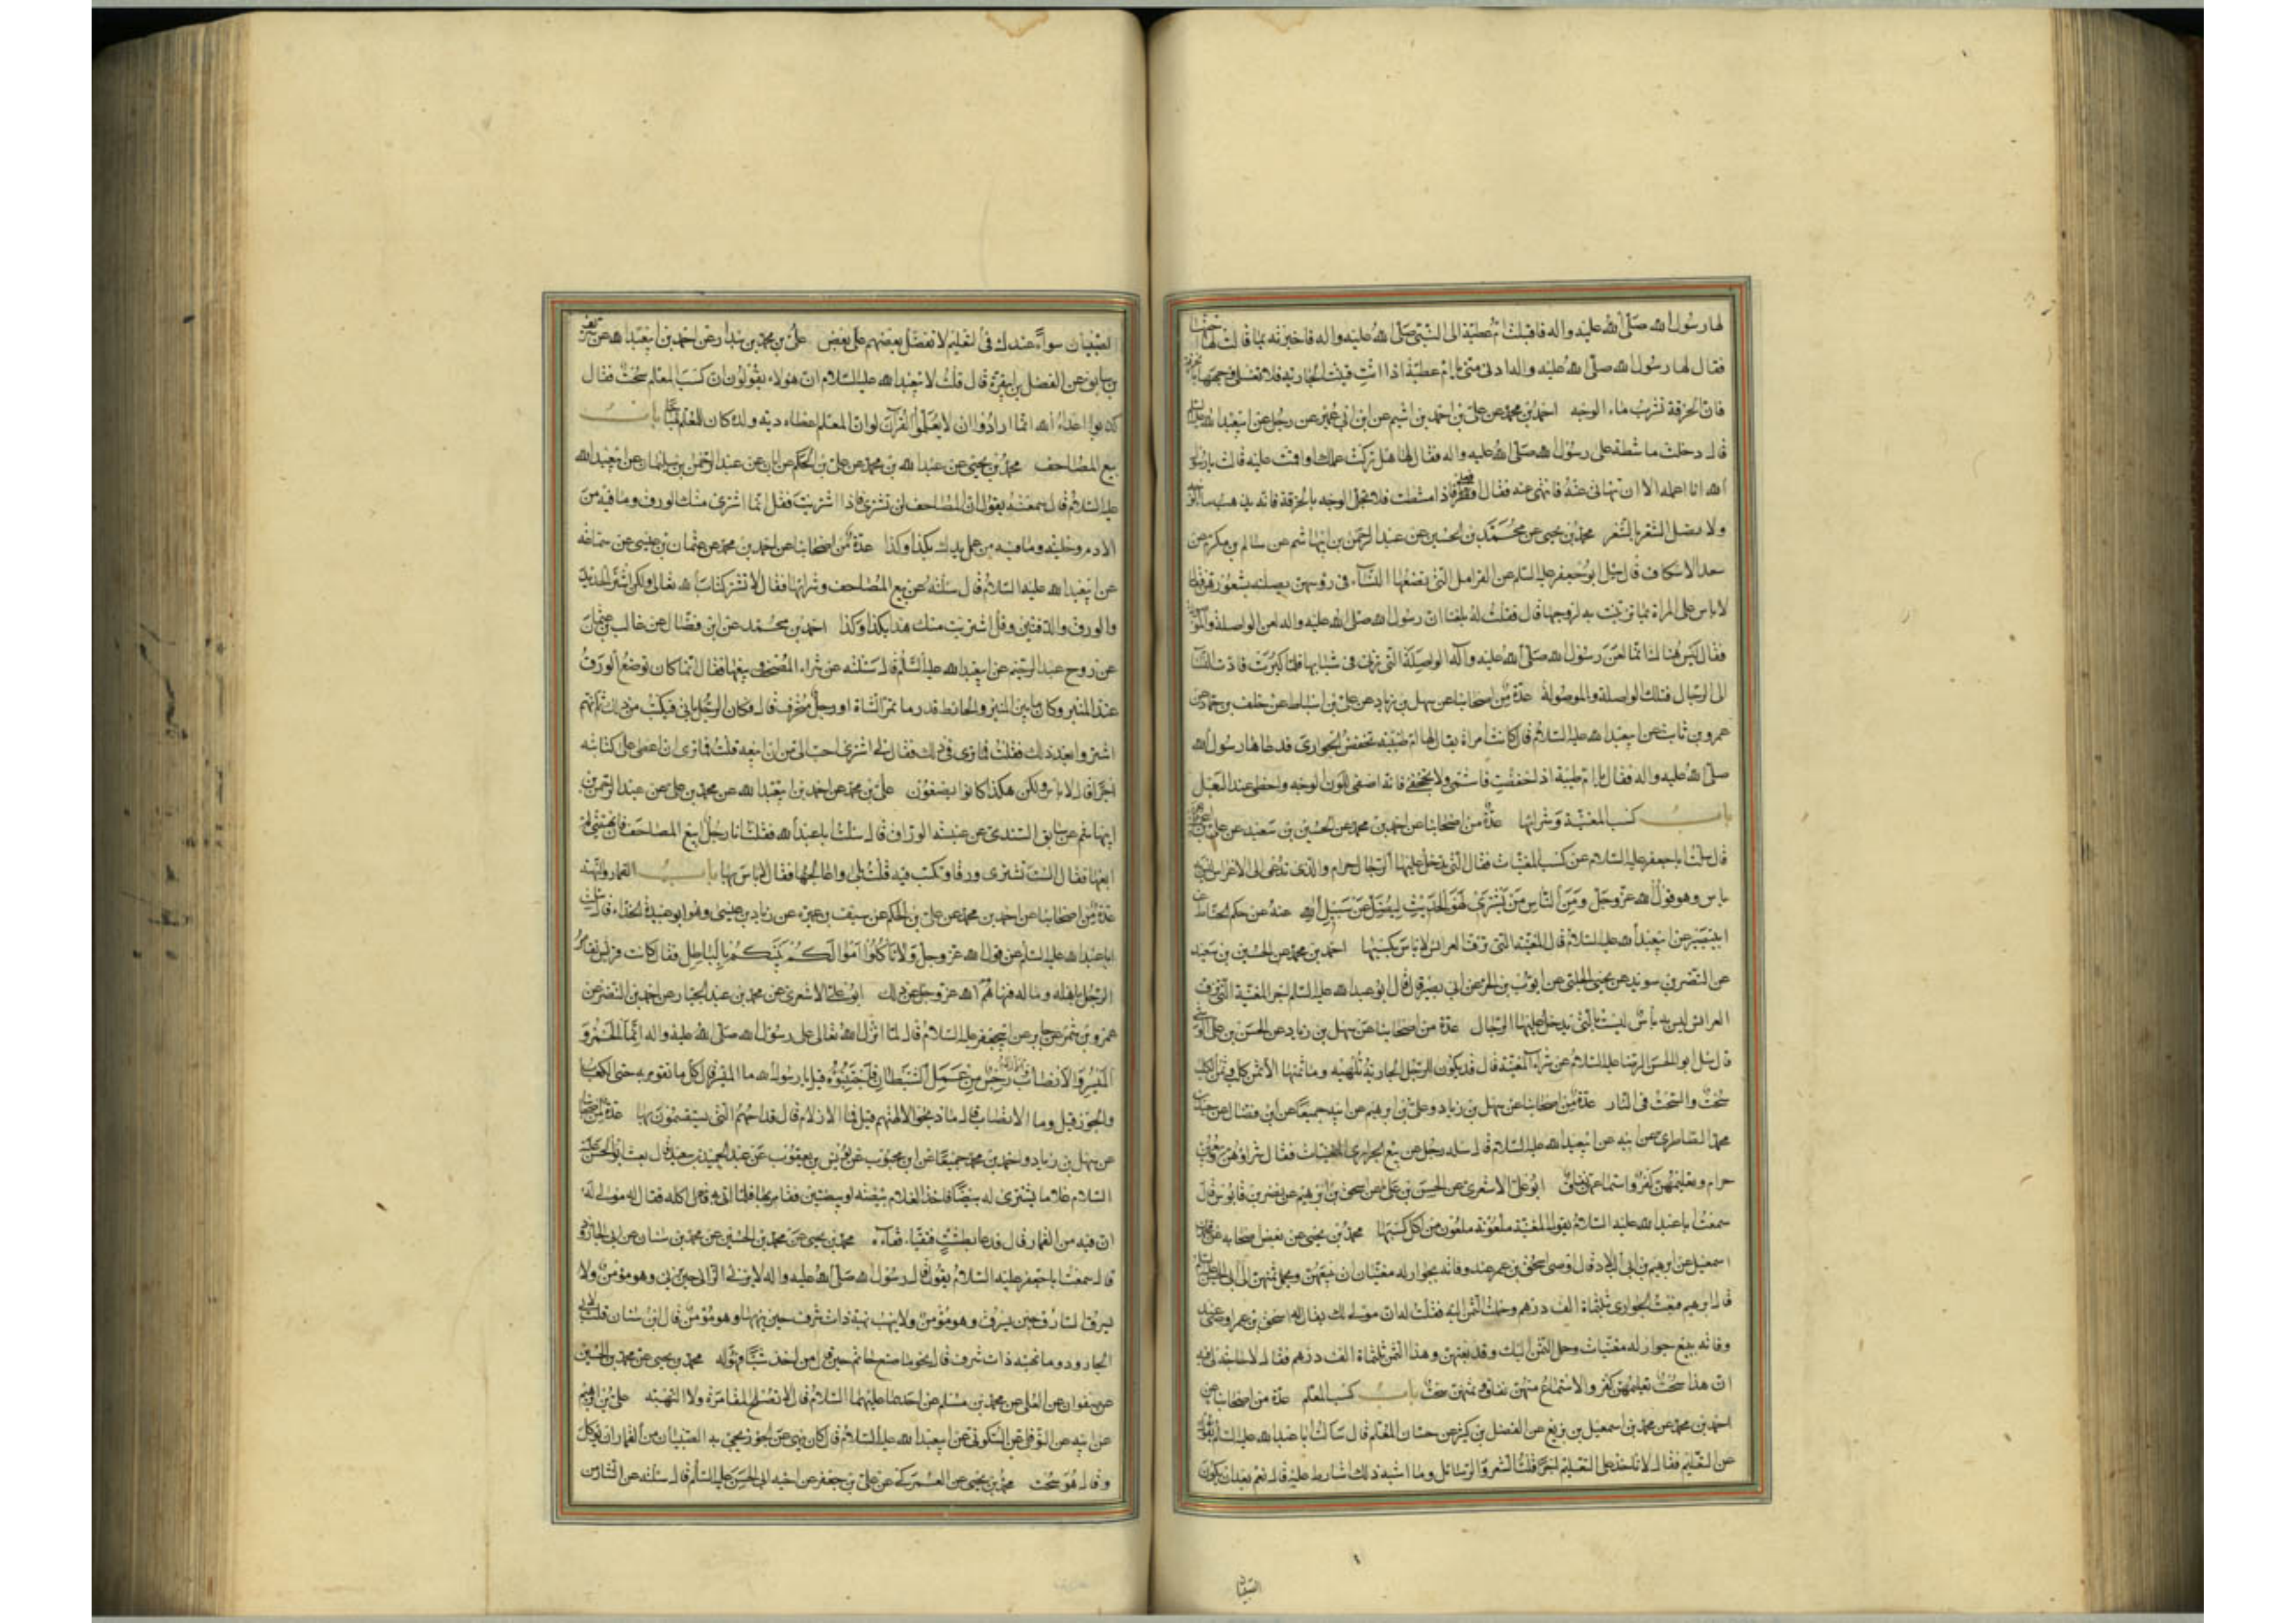 لها رسول الله صلى الله عليه واله فاقبلت ام عطية الى النبي صلى الله عليه واله فاخبرته بما قالت لها اختها
فقال لها رسول الله صلى الله عليه واله ادنى منى يا ام عطية اذا انت قينت الجارية فلا تغسلى وجهها بالخرقة
فان الخرقة تشرب ماء الوجه احمد بن محمد عن على بن احمد بن اشيم عن ابن ابى عمير عن رجل عن ابيعبد الله عليه السلم
قال دخلت ماشطة على رسول الله صلى الله عليه واله فقال لها هل تركت عملك او اقمت عليه قالت يا رسول
الله انا اعمله الا ان تنهانى عنه فانتهى عنه فقال افعلى فاذا مشطت فلا تجلى الوجه بالخرقة فانه يذهب بماء الوجه
ولا تصلى الشعر بالشعر محمد بن يحيى عن محمد بن الحسين عن عبد الرحمن بن ابيهاشم عن سالم بن مكرم عن
سعد الاسكاف قال سئل ابو جعفر عليه السلم عن القرامل التى تضعها النساء فى رؤسهن يصلنه بشعورهن فقال
لا باس على المراة بما تزينت به لزوجها قال فقلت له بلغنا ان رسول الله صلى الله عليه واله لعن الواصلة والموصولة
فقال ليس هنالك انما لعن رسول الله صلى الله عليه وآله الواصلة التى تزنى فى شبابها فلما كبرت قادت النساء
الى الرجال فتلك الواصلة والموصولة عدة من اصحابنا عن سهل بن زياد عن على بن اسباط عن خلف بن حماد عن
عمرو بن ثابت عن ابيعبد الله عليه السلام قال كانت امراة يقال لها ام طيبة تخفض الجوارى فدعاها رسول الله
صلى الله عليه واله فقال يا ام طيبة اذا خفضت فاشمى ولا تجحفى فانه اصفى للون الوجه واحظى عند البعل
باب كسب المغنية وشرائها عدة من اصحابنا عن احمد بن محمد عن الحسين بن سعيد عن على بن ابى حمزة
قال سئلت ابا جعفر عليه السلام عن كسب المغنيات فقال التى يدخل عليها الرجال حرام والذى تدعى الى الاعراس ليس به
باس وهو قول الله عز وجل ومن الناس من يشترى لهو الحديث ليضل عن سبيل الله عنه عن حكم الحناط عن
ابيبصير عن ابيعبد الله عليه السلام قال المغنية التى تزف العرائس لا باس بكسبها احمد بن محمد عن الحسين بن سعيد
عن النضر بن سويد عن يحيى الحلبى عن ايوب بن الحر عن ابى بصير قال قال ابو عبد الله عليه السلم اجر المغنية التى تزف
العرائس ليس به بأس ليست بالتى يدخل عليها الرجال عدة من اصحابنا عن سهل بن زياد عن الحسن بن على الوشاء
قال سئل ابو الحسن الرضا عليه السلام عن شراء المغنية قال قد يكون للرجل الجارية تلهيه وما ثمنها الا ثمن كلب وثمن الكلب
سحت والسحت فى النار عدة من اصحابنا عن سهل بن زياد وعلى بن ابرهيم عن ابيه جميعا عن ابن فضال عن سعيد بن
محمد الطاطرى عن ابيه عن ابيعبد الله عليه السلام قال سئله رجل عن بيع الجوارى المغنيات فقال شراؤهن وبيعهن
حرام وتعليمهن كفر واستماعهن نفاق ابو على الاشعرى عن الحسن بن على عن اسحق بن ابرهيم عن نضر بن قابوس قال
سمعت ابا عبد الله عليه السلام يقول المغنية ملعونة ملعون من اكل كسبها محمد بن يحيى عن بعض اصحابه عن محمد بن
اسمعيل عن ابرهيم بن ابى البلاد قال اوصى اسحق بن عمر عند وفاته بجوار له مغنيات ان نبيعهن ونحمل ثمنهن الى ابى الحسن عليه السلم
قال ابرهيم فبعت الجوارى بثلثماة الف درهم وحملت الثمن اليه فقلت له ان مولى لك يقال له اسحق بن عمر اوصى عند
وفاته ببيع جوار له مغنيات وحمل الثمن اليك وقد بعتهن وهذا الثمن ثلثماة الف درهم فقال لا حاجة لى فيه
ان هذا سحت وتعليمهن كفر والاستماع منهن نفاق وثمنهن سحت باب كسب المعلم عدة من اصحابنا عن
احمد بن محمد عن محمد بن اسمعيل بن بزيع عن الفضل بن كثير عن حسان المعلم قال سألت ابا عبد الله عليه السلم
عن التعليم فقال لا تاخذ على التعليم اجرا قلت الشعر والرسائل وما اشبه ذلك اشارط عليه قال نعم بعد ان يكون
الصبيان
الصبيان سواء عندك فى التعليم لا تفضل بعضهم على بعض على بن محمد بن بندار عن احمد بن ابيعبد الله عن شريف
بن سابق عن الفضل بن ابيقرة قال قلت لابيعبد الله عليه السلام ان هولاء يقولون ان كسب المعلم سحت فقال
كذبوا اعداء الله انما ارادوا ان لا يعلموا القرآن لو ان المعلم اعطاه رجل دية ولده كان للمعلم مباحا باب
بيع المصاحف محمد بن يحيى عن عبد الله بن محمد عن على بن الحكم عن ابان عن عبد الرحمن بن سليمان عن ابيعبد الله
عليه السلام قال سمعته يقول ان المصاحف لن تشترى فاذا اشتريت فقل انما اشترى منك الورق وما فيه من
الادم وحليته وما فيه من عمل يدك بكذا وكذا عدة من اصحابنا عن احمد بن محمد عن عثمان بن عيسى عن سماعة
عن ابيعبد الله عليه السلام قال سئلته عن بيع المصاحف وشرائها فقال لا تشتر كتاب الله تعالى ولكن اشتر الحديد
والورق والدفتين وقل اشتريت منك هذا بكذا وكذا احمد بن محمد عن ابن فضال عن غالب بن عثمان
عن روح عبد الرحيم عن ابيعبد الله عليه السلم قال سئلته عن شراء المصحف وبيعها فقال انما كان توضع الورق
عند المنبر وكان ما بين المنبر والحائط قدر ما تمر الشاة او رجل منحرف قال فكان الرجل ياتى فيكتب من ذلك ثم انهم
اشتروا بعد ذلك فقلت فما ترى فى ذلك فقال لى اشترى احب الى من ان ابيعه قلت فما ترى ان اعطى على كتابته
اجرا قال لا باس ولكن هكذا كانوا يصنعون على بن محمد عن احمد بن ابيعبد الله عن محمد بن على عن عبد الرحمن بن
ابيهاشم عن سابق السندى عن عنبسة الوراق قال سئلت ابا عبد الله فقلت انا رجل ابيع المصاحف فان نهيتنى لم
ابعها فقال الست تشترى ورقا وتكتب فيه قلت بلى واعالجها فقال لا باس بها باب القمار والنهبة
عدة من اصحابنا عن احمد بن محمد عن على بن الحكم عن سيف بن عميرة عن زياد بن عيسى وهو ابو عبيدة الحذاء قال سئلت
ابا عبد الله عليه السلم عن قول الله عز وجل ولا تاكلوا اموالكم بينكم بالباطل فقال كانت قريش تقامر
الرجل باهله وماله فنهاهم الله عز وجل عن ذلك ابو على الاشعرى عن محمد بن عبد الجبار عن احمد بن النضر عن
عمرو بن شمر عن جابر عن ابيجعفر عليه السلام قال لما انزل الله تعالى على رسول الله صلى الله عليه واله انما الخمر و
الميسر والانصاب والازلام رجس من عمل الشيطان فاجتنبوه قيل يا رسول الله ما الميسر قال كل ما تقومر به حتى الكعاب
والجوز قيل وما الانصاب قال ما ذبحوا لالهتهم قيل فما الازلام قال قداحهم التى يستقسمون بها عدة من اصحابنا
عن سهل بن زياد واحمد بن محمد جميعا عن ابن محبوب عن يونس بن يعقوب عن عبد الحميد بن سعيد قال بعث ابو الحسن عليه
السلام غلاما يشترى له بيضا فاخذ الغلام بيضة او بيضتين فقامر بها فلما اتى به فاكله فقال له مولى له
ان فيه من القمار قال فدعا بطشت فتقيا فقاءه محمد بن يحيى عن محمد بن الحسين عن محمد بن سنان عن ابى الجارود
قال سمعت ابا جعفر عليه السلام يقول قال رسول الله صلى الله عليه واله لا يزنى الزانى حين يزنى وهو مؤمن ولا
يسرق السارق حين يسرق وهو مؤمن ولا ينهب نهبة ذات شرف حين ينهبها وهو مؤمن قال ابن سنان قلت لابى
الجارود وما نهبة ذات شرف قال نحو ما صنع حاتم حين قال من اخذ شيئا فهو له محمد بن يحيى عن محمد بن الحسين
عن صفوان عن العلى عن محمد بن مسلم عن احدهما عليهما السلام قال لا تصلح المقامرة ولا النهبة على بن ابرهيم
عن ابيه عن النوفلى عن السكونى عن ابيعبد الله عليه السلام قال كان ينهى عن الجوز يجئ به الصبيان من القمار ان يؤكل
وقال هو سحت محمد بن يحيى عن العمركى عن على بن جعفر عن اخيه ابى الحسن عليه السلم قال سئلته عن النثار من